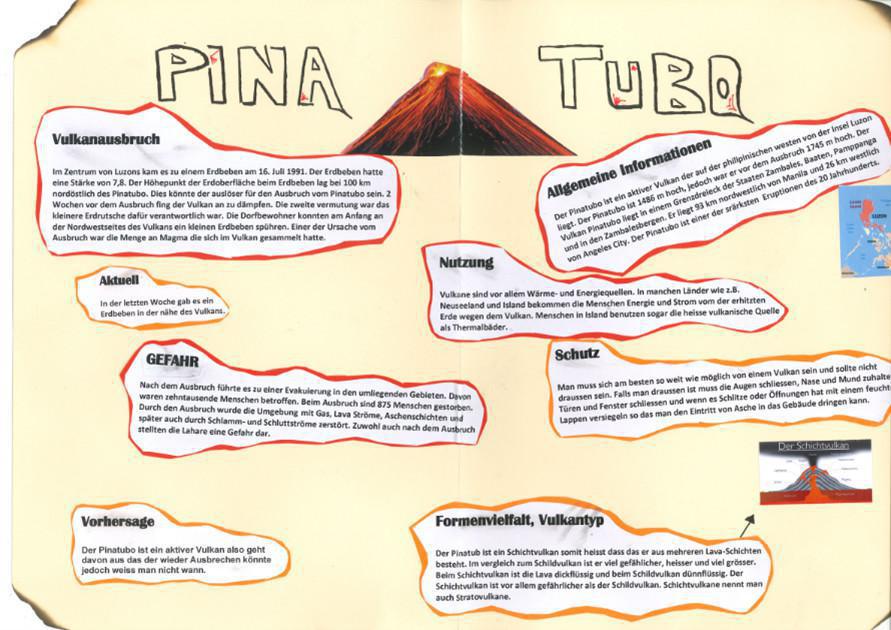 PINA TUBO
Vulkanausbruch
Im Zentrum von Luzons kam es zu einem Erdbeben am 16. Juli 1991. Der Erdbeben hatte
eine Stärke von 7,8. Der Höhepunkt der Erdoberfläche beim Erdbeben lag bei 100 km
nordöstlich des Pinatubo. Dies könnte der auslöser für den Ausbruch vom Pinatubo sein. 2
Wochen vor dem Ausbruch fing der Vulkan an zu dämpfen. Die zweite vermutung war das
kleinere Erdrutsche dafür verantwortlich war. Die Dorfbewohner konnten am Anfang an
der Nordwestseites des Vulkans ein kleinen Erdbeben spühren. Einer der Ursache vom
Ausbruch war die Menge an Magma die sich im Vulkan gesammelt hatte.
Allgemeine Informationen
Der Pinatubo ist ein aktiver Vulkan der auf der philipinischen westen von der Insel Luzon
liegt. Der Pinatubo ist 1486 m hoch, jedoch war er vor dem Ausbruch 1745 m hoch. Der
Vulkan Pinatubo liegt in einem Grenzdreieck der Staaten Zambales. Baaten, Pamppanga
und in den Zambalesbergen. Er liegt 93 km nordwestlich von Manila und 26 km westlich
von Angeles City. Der Pinatubo ist einer der srärksten Eruptionen des 20 Jahrhunderts.
LUZON
Aktuell
In der letzten Woche gab es ein
Erdbeben in der nähe des Vulkans.
Nutzung
Vulkane sind vor allem Wärme- und Energiequellen. In manchen Länder wie z.B.
Neuseeland und Island bekommen die Menschen Energie und Strom vom der erhitzten
Erde wegen dem Vulkan. Menschen in Island benutzen sogar die heisse vulkanische Quelle
als Thermalbäder.
GEFAHR
Nach dem Ausbruch führte es zu einer Evakuierung in den umliegenden Gebieten. Davon
waren zehntausende Menschen betroffen. Beim Ausbruch sind 875 Menschen gestorben.
Durch den Ausbruch wurde die Umgebung mit Gas, Lava Ströme, Aschenschichten und
später auch durch Schlamm- und Schluttströme zerstört. Zuwohl auch nach dem Ausbruch
stellten die Lahare eine Gefahr dar.
Schutz
Man muss sich am besten so weit wie möglich von einem Vulkan sein und sollte nicht
draussen sein. Falls man draussen ist muss die Augen schliessen, Nase und Mund zuhalte
Türen und Fenster schliessen und wenn es Schlitze oder Öffnungen hat mit einem feucht
Lappen versiegeln so das man den Eintritt von Asche in das Gebäude dringen kann.
Der Schichtvulkan
Vorhersage
Der Pinatubo ist ein aktiver Vulkan also geht
davon aus das der wieder Ausbrechen könnte
jedoch weiss man nicht wann.
Formenvielfalt, Vulkantyp
Der Pinatub ist ein Schichtvulkan somit heisst dass das er aus mehreren Lava-Schichten
besteht. Im vergleich zum Schildvulkan ist er viel gefählicher, heisser und viel grösser.
Beim Schichtvulkan ist die Lava dickflüssig und beim Schildvulkan dünnflüssig. Der
Schichtvulkan ist vor allem gefährlicher als der Schildvulkan. Schichtvulkane nennt man
auch Stratovulkane.